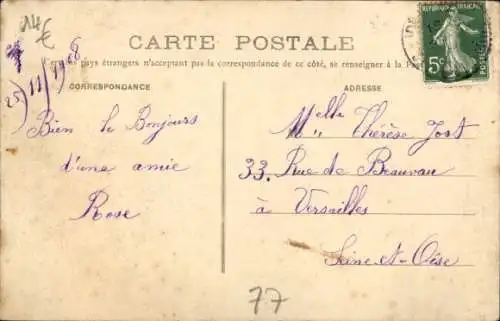 14€
CARTE POSTALE
pays étrangers n'acceptant pas la correspondance de ce côté, se renseigner à la Poste
CORRESPONDANCE
ADRESSE
25/11/1908
Bien le Bonjours
d'une amie
Rose
Melle Thérèse Jost
33. Rue de Beauvau
à Versailles
Seine-et-Oise
77
REPUBLIQUE FRANÇAISE
5c
POSTES